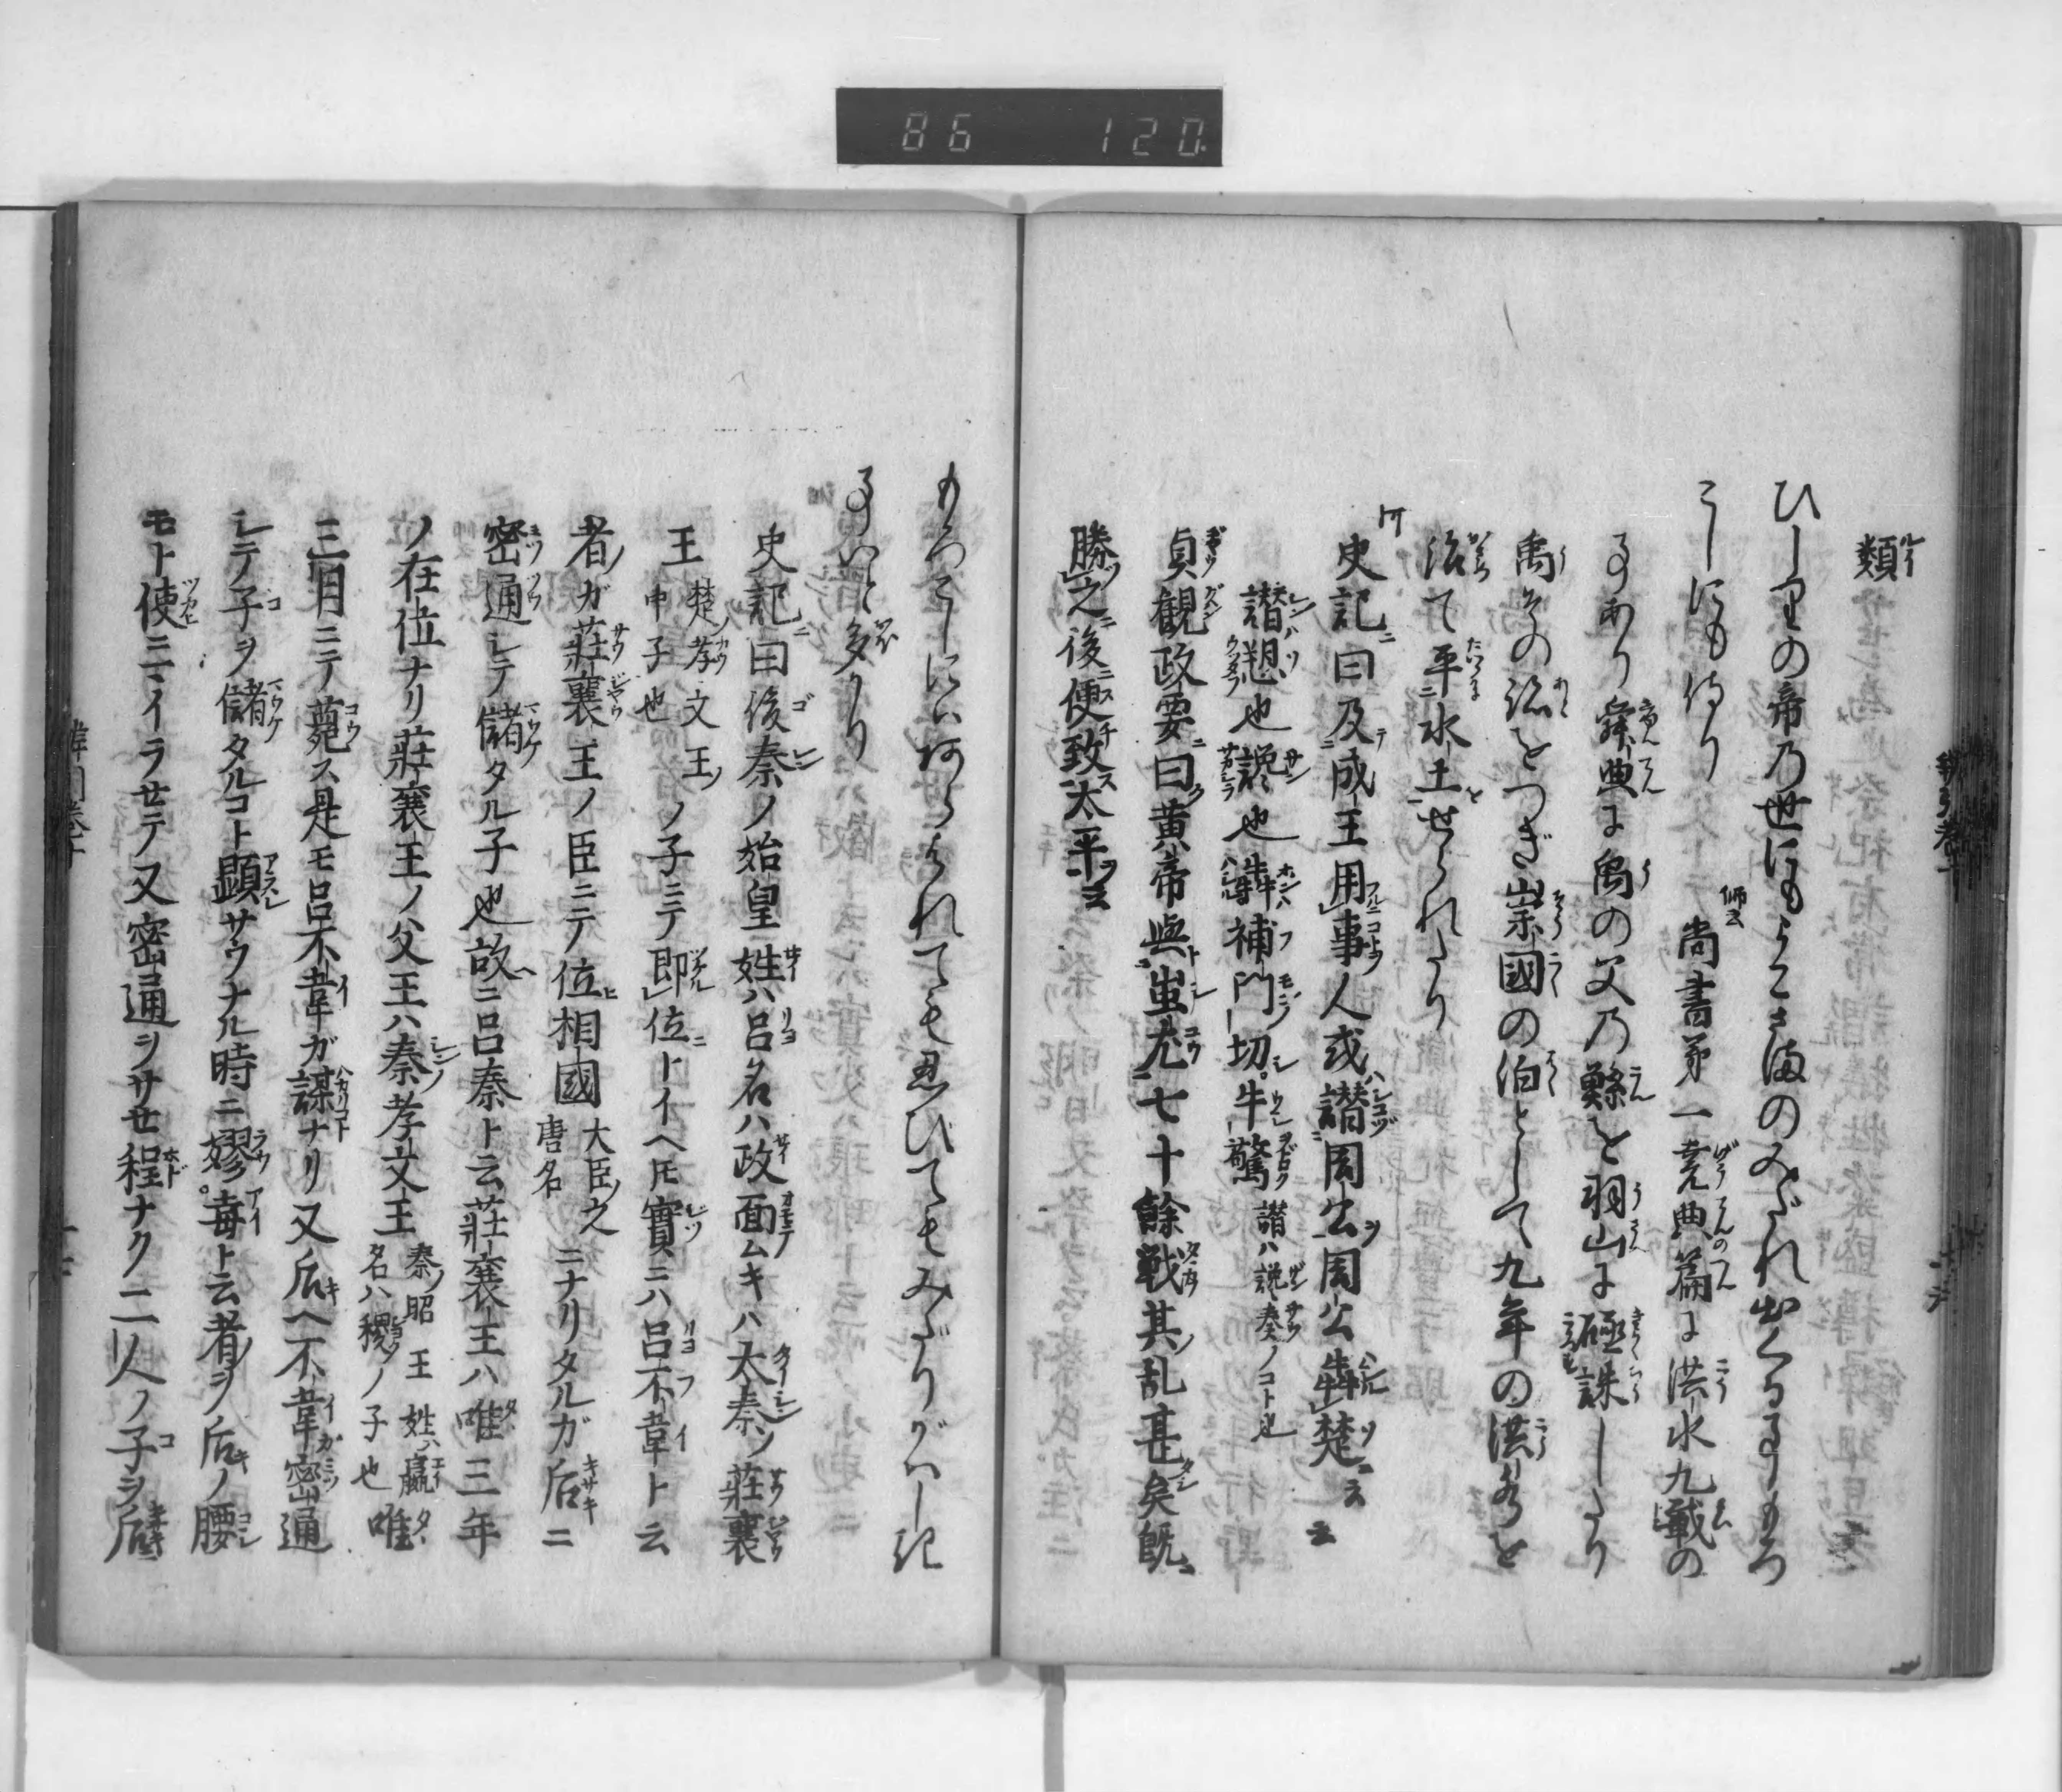 86 120
類
ひじりの帝乃世にもよこさまのみだれ出くる事もろ
こしにも侍り 師云尚書第一堯典篇に洪水九載の
事あり舜典に禹の父乃鯀を羽山に殛誅したり
禹その跡をつぎ崇國の伯として九年の洪水を
治て平水土せられたり
史記曰及成王用事人或譖周公周公犇楚云云
譖愬也讒也犇補門切牛驚 譖ハ讒奏ノコト也
貞観政要曰黄帝與蚩尤七十餘戦其乱甚矣既
勝之後便致太平云
もろこしにはあらはれても忍びてもみだりがはしき
事いと多かり
史記曰後秦ノ始皇姓ハ呂名ハ政面ムキハ太秦ノ莊襄
王 楚ノ孝文王ノ中子也 ノ子ニテ即位トイヘ𪜈實ニハ呂不韋ト云
者ガ莊襄王ノ臣ニテ位相國 大臣之唐名 ニナリタルガ后ニ
密通シテ儲タル子也故ニ呂秦ト云莊襄王ハ唯三年
ノ在位ナリ莊襄王ノ父王ハ秦孝文王 秦ノ昭王姓ハ嬴名ハ稷ノ子也 唯
三月ニテ薨ス是モ呂不韋ガ謀ナリ又后ヘ不韋密通
シテ子ヲ儲タルコト顕サウナル時ニ嫪毐ト云者ヲ后ノ腰
モト使ニマイラセテ又密通シサセ程ナク二人ノ子ヲ后